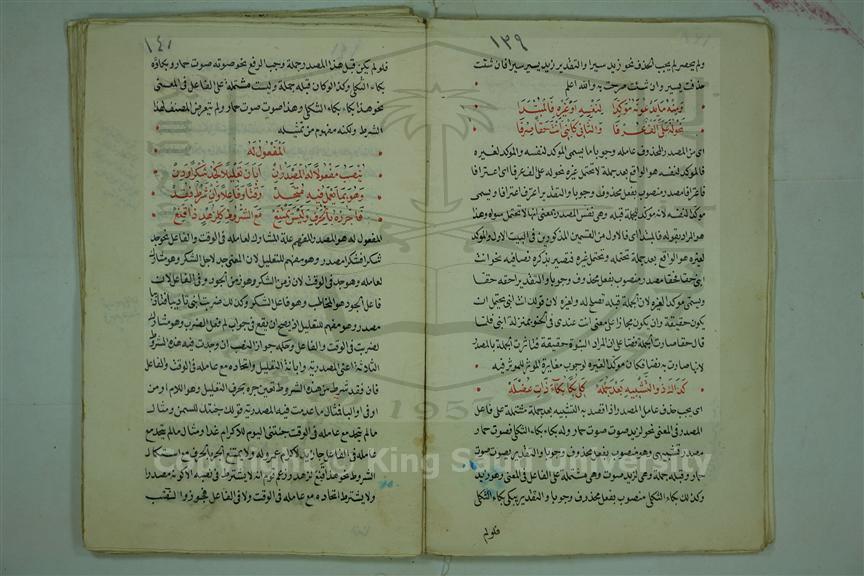 ١٣٩
ولم يحصر لم يجب الحذف نحو زيد سيرا والتقدير زيد يسير سيرا فان شئت
حذفت يسير وان شئت صرحت به والله اعلم
ومنه ما يدعونه مؤكدا لنفسه او غيره فالمبتدا
نحو له علي الف عرفا والثاني كابني انت حقا صرفا
اي من المصدر المحذوف عامله وجوبا ما يسمى المؤكد لنفسه والمؤكد لغيره
فالمؤكد لنفسه هو الواقع بعد جملة لا تحتمل غيره نحو له علي الف عرفا اي اعترافا
فاعترافا مصدر منصوب بفعل محذوف وجوبا والتقدير اعترف اعترافا ويسمى
مؤكدا لنفسه لانه مؤكد للجملة قبله وهي نفس المصدر بمعنى انها لا تحتمل سواه وهذا
هو المراد بقوله فالمبتدا اي فالاول من القسمين المذكورين في البيت الاول والمؤكد
لغيره هو الواقع بعد جملة تحتمله وتحتمل غيره فتصير بذكره نصا فيه نحو انت
ابني حقا فحقا مصدر منصوب بفعل محذوف وجوبا والتقدير احقه حقا
ويسمى مؤكدا لغيره لان الجملة قبله تصلح له ولغيره لان قولك انت ابني يحتمل ان
يكون حقيقة وان يكون مجازا على معنى انت عندي في الحنو بمنزلة ابني فلما
قال حقا صارت الجملة نصا في ان المراد البنوة حقيقة فتاثرت الجملة بالمصدر
لانها صارت به نصا فكان مؤكدا لغيره لوجوب مغايرة المؤثر للمؤثر فيه
كذاك ذو التشبيه بعد جملة كلي بكا بكاء ذات عضلة
اي يجب حذف عامل المصدر اذا قصد به التشبيه بعد جملة مشتملة على فاعل
المصدر في المعنى نحو لزيد صوت صوت حمار وله بكاء بكاء الثكلى فصوت حمار
مصدر تشبيهي وهو منصوب بفعل محذوف وجوبا والتقدير يصوت صوت
حمار وقبله جملة لزيد صوت وهي مشتملة على الفاعل في المعنى وهو زيد
وكذلك بكاء الثكلى منصوب بفعل محذوف وجوبا والتقدير يبكي بكاء الثكلى
فلو لم
١٤١
فلو لم يكن قبل هذا المصدر جملة وجب الرفع نحو صوته صوت حمار وبكاؤه
بكاء الثكلى وكذا لو كان قبله جملة وليست مشتملة على الفاعل في المعنى
نحو هذا بكاء بكاء الثكلى وهذا صوت صوت حمار ولم يتعرض المصنف لهذا
الشرط ولكنه مفهوم من تمثيله
المفعول له
ينصب مفعولا له المصدر ان ابان تعليلا كجد شكرا ودن
وهو بما يعمل فيه متحد وقتا وفاعلا وان شرط فقد
فاجرره بالحرف وليس يمتنع مع الشروط كلزهد ذا قنع
المفعول له هو المصدر المفهم علة المشارك لعامله في الوقت والفاعل نحو جد
شكرا فشكرا مصدر وهو مفهم للتعليل لان المعنى جد لاجل الشكر وهو مشارك
لعامله وهو جد في الوقت لان زمن الشكر هو زمن الجود وفي الفاعل لان
فاعل الجود هو المخاطب وهو فاعل الشكر وكذلك ضربت ابني تاديبا فتاديبا
مصدر وهو مفهم للتعليل اذ يصح ان يقع في جواب لم فعل الضرب وهو مشارك
لضربت في الوقت والفاعل وحكمه جواز النصب ان وجدت فيه هذه الشروط
الثلاثة اعني المصدرية وابانة التعليل واتحاده مع عامله في الوقت والفاعل
فان فقد شرط من هذه الشروط تعين جره بحرف التعليل وهو اللام او من
او في او البا فمثال ما عدمت فيه المصدرية قولك جئتك للسمن ومثال
ما لم يتحد مع عامله في الوقت جئتني اليوم للاكرام غدا ومثال ما لم يتحد مع
عامله في الفاعل جاء زيد لاكرام عمرو له ولا يمتنع الجر بالحرف مع استكمال
الشروط نحو هذا قنع لزهد وزعم قوم انه لا يشترط في نصبه الا كونه مصدرا
ولا يشترط اتحاده مع عامله في الوقت ولا في الفاعل فجوزوا النصب
Copyright © King Saud University
1957